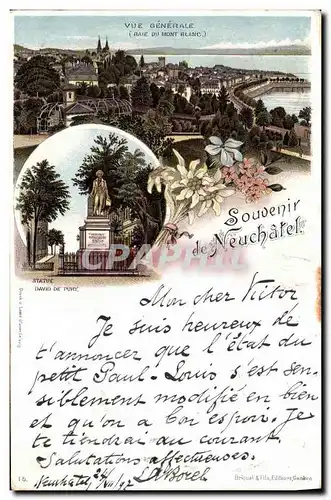 VUE GÉNÉRALE
(BAIE DU MONT BLANC.)
Souvenir
de Neuchâtel.
STATUE
DAVID DE PURY.
Mon cher Victor
Je suis heureux de
t'annoncer que l'état du
petit Paul-Louis s'est sen-
siblement modifié en bien
et qu'on a bon espoir. Je
te tiendrai au courant
Salutations affectueuses.
Neuchâtel
15.
Briquet & Fils, Editeurs, Genève